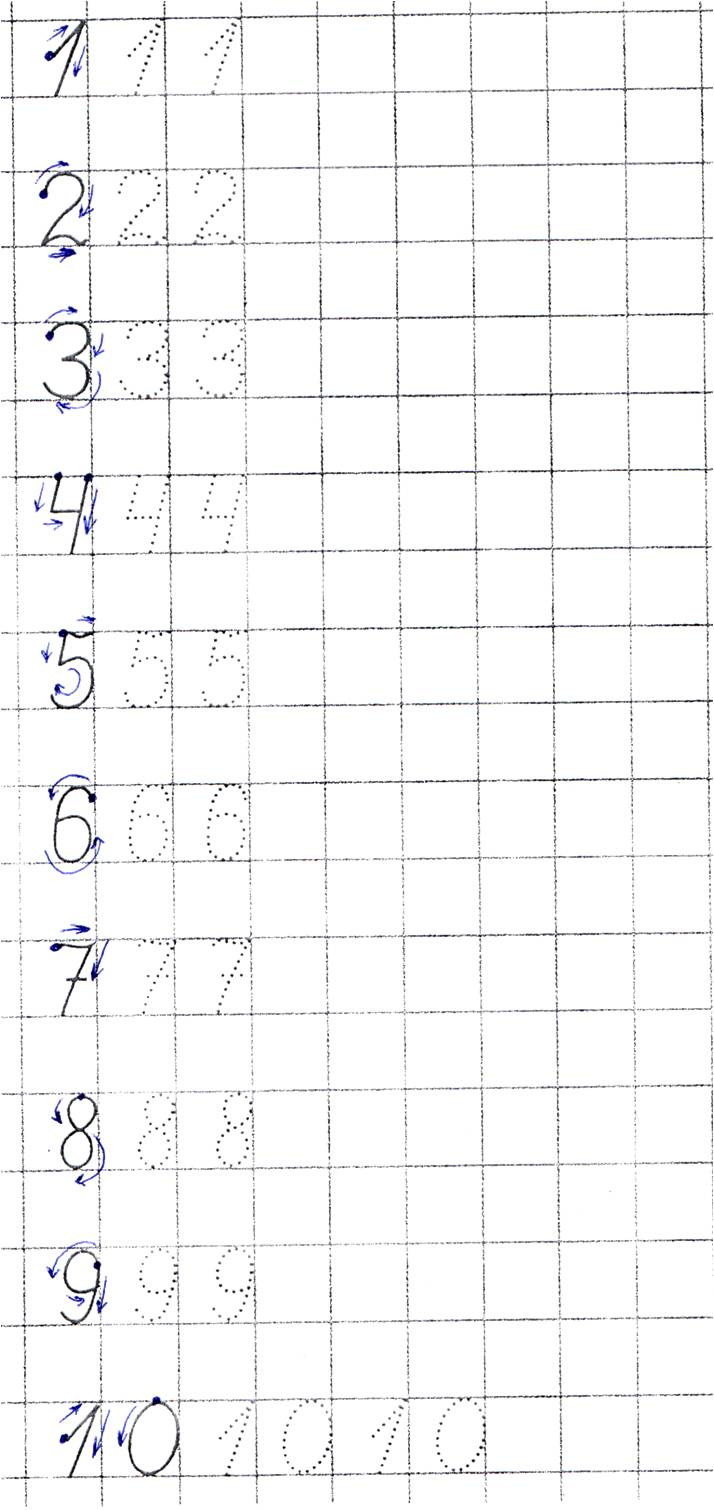 1 1 1
2 2 2
3 3 3
4 4 4
5 5 5
6 6 6
7 7 7
8 8 8
9 9 9
10 10 10